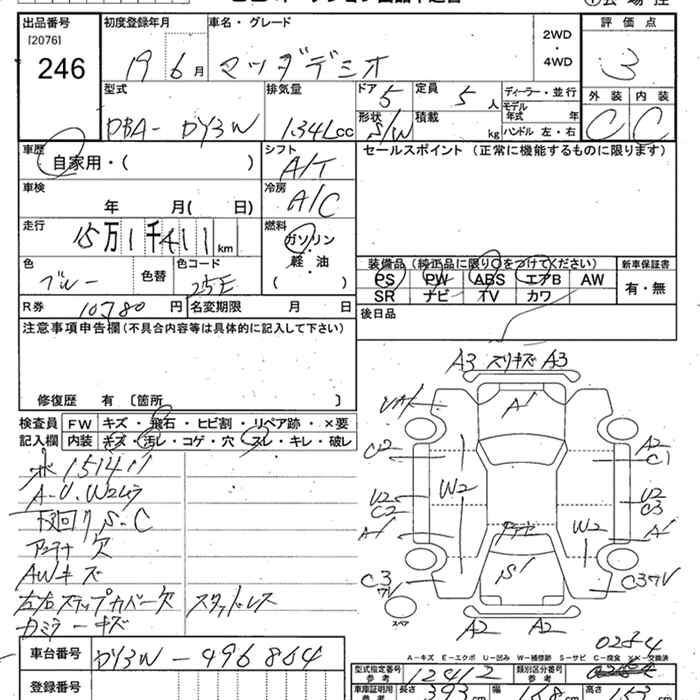 出品番号
[2076]
246
初度登録年月
19 6月
車名・グレード
マツダデミオ
2WD
・
4WD
評価点
3
型式
DBA- DY3W
排気量
1.34L cc
ドア 5
形状 S/W
定員 5人
積載 kg
ディーラー・並行
モデル年式 年
ハンドル 左・右
外装 内装
C C
車歴
自家用・( )
シフト
A/T
セールスポイント (正常に機能するものに限ります)
車検
年 月( 日)
冷房
A/C
走行
15万1千411km
燃料
ガソリン
・
軽油
( )
色
ブルー
色替
色コード
25E
装備品 (純正品に限り○をつけてください)
PS PW ABS エアB AW
SR ナビ TV カワ
新車保証書
有・無
R券 10780円
名変期限 月 日
後日品
注意事項申告欄 (不具合内容等は具体的に記入して下さい)
修復歴 有 〔箇所 〕
検査員
記入欄
FW キズ・飛石・ヒビ割・リペア跡・×要
内装 キズ・汚レ・コゲ・穴・スレ・キレ・破レ
151411
A-U.W2ムラ
下回りS-C
アンテナ欠
AWキズ
左右ステップカバー欠 スタッドレス
カミラーキズ
A3 スリキズ A3
A1
C2
A2
C1
U2
C2
W2
U2
C3
A1
W2
A1
C3
S1
A2 A2
スペア
A-キズ E-エクボ U-凹み W-補修跡 S-サビ C-腐食 XX-交換済
車台番号
DY3W-496864
登録番号
型式指定番号
参考
12412
類別区分番号
参考
0284
車庫証明用
参考
長さ 393cm 幅 168 高さ 153